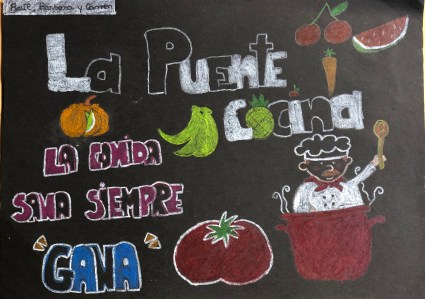 Barbara y Carmen
La PuEntE
Cocina
LA COMIDA
SANA SiEMPRE
"GANA"